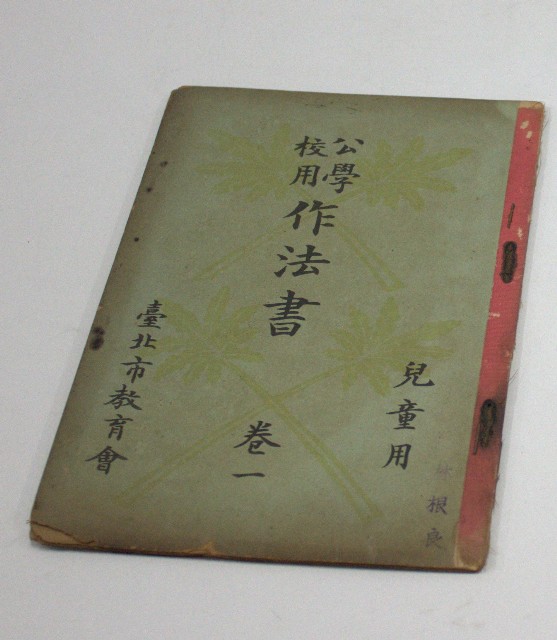 兒童用
公學
校用
作法書
卷一
臺北市教育會
根良